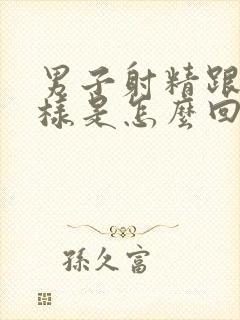 男子射精跟
樣是怎麼回
孫久富